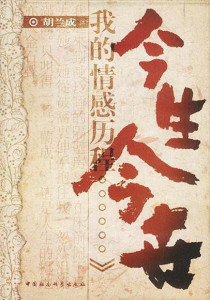 胡兰成
今生今世
我的情感历程
中国社会科学出版社